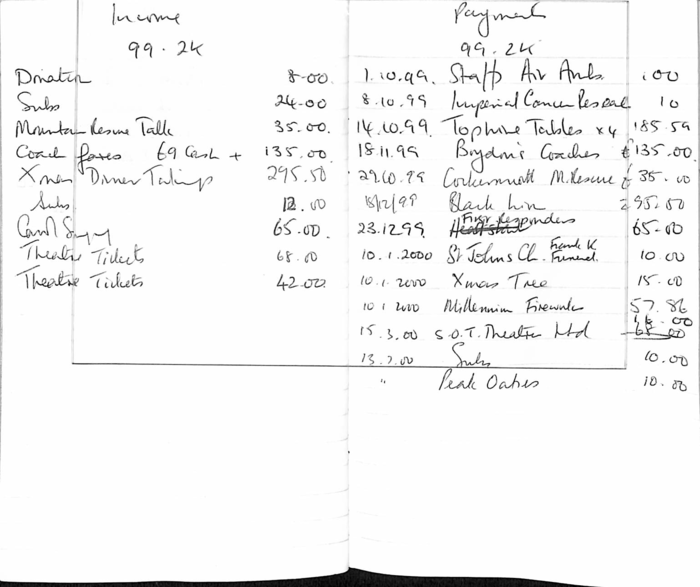 Income
99.2K
Donation 8-00
Subs 24-00
Mountain Rescue Talk 35.00.
Coach fares 69 Cash + 135.00.
Xmas Dinner Takings 295.50
Subs 12.00
Carol 65.00.
Theatre Tickets 68.00
Theatre Tickets 42.00
Payments
99.2K
1.10.99. Staffs Air Amb. .00
8.10.99 Imperial Cancer Reseal 10
14.10.99. Tophire Tables x4 185.59
18.11.99 Brydon's Coaches £135.00
29.10.99 Cockermouth M.Rescue £35.00
18/12/99 Black Lion 295.50
First Responders
23.12.99. 65-00
10.1.2000 St Johns Ch. Frank K Funeral. 10.00
10.1.2000 Xmas Tree 15.00
10 1 2000 Millennium Fireworks 57.86
15.3.00 S.O.T. Theatre Ltd 68.00
13.7.00 Subs 10.00
" Peak Oaties 10.00